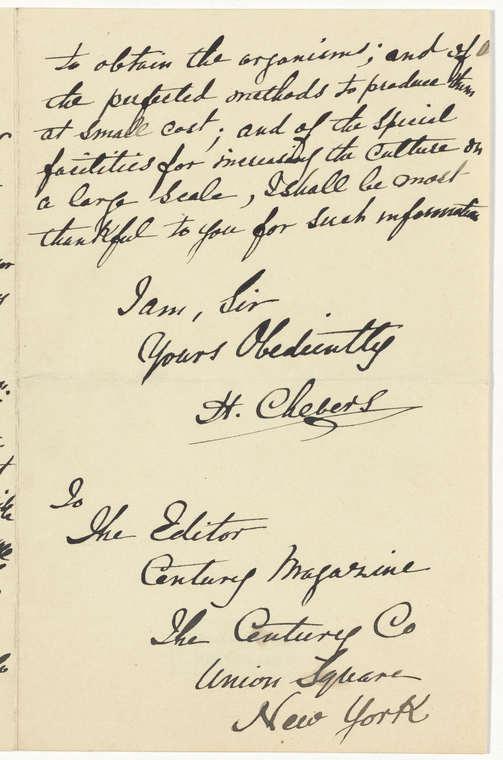 to obtain the organisms; and of
the perfected methods to produce them
at small cost; and of the special
facilities for increasing the culture on
a large scale, I shall be most
thankful to you for such information
I am, Sir
Yours Obediently
H. Chevers
To
The Editor
Century Magazine
The Century Co
Union Square
New York